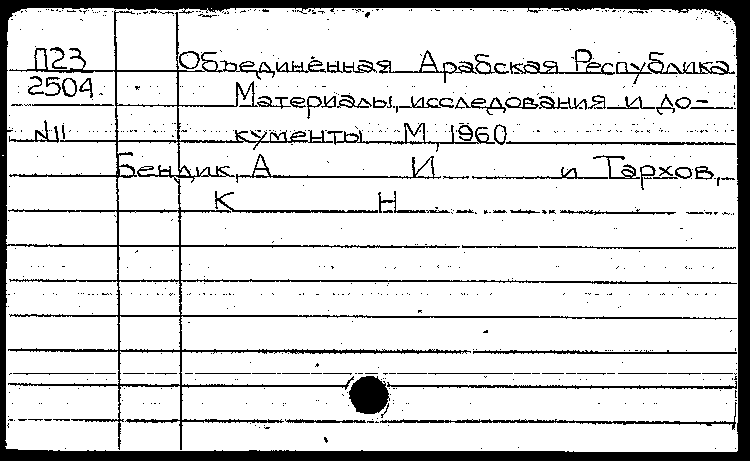 П23 Объединённая Арабская Республика
2504 Материалы, исследования и до-
N11 кументы. М., 1960
Бендик, А И и Тархов,
К Н